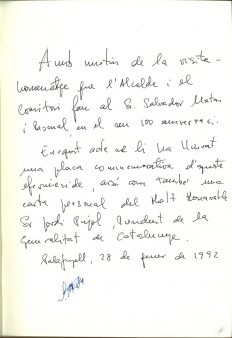 Amb motiu de la visita-
homenatge que l'Alcalde i el
Consistori fan al Sr. Salvador Matas
i Pascual en el seu 100 aniversari.
En aquest acte se li ha lliurat
una placa commemorativa d'aquesta
efemèride, així com també una
carta personal del Molt Honorable
Sr Jordi Pujol, President de la
Generalitat de Catalunya.
Palafrugell, 28 de gener de 1992